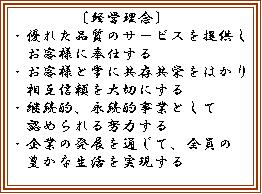 〔経営理念〕
・優れた品質のサービスを提供し
お客様に奉仕する
・お客様と常に共存共栄をはかり
相互信頼を大切にする
・継続的、永続的事業として
認められる努力する
・企業の発展を通じて、全員の
豊かな生活を実現する